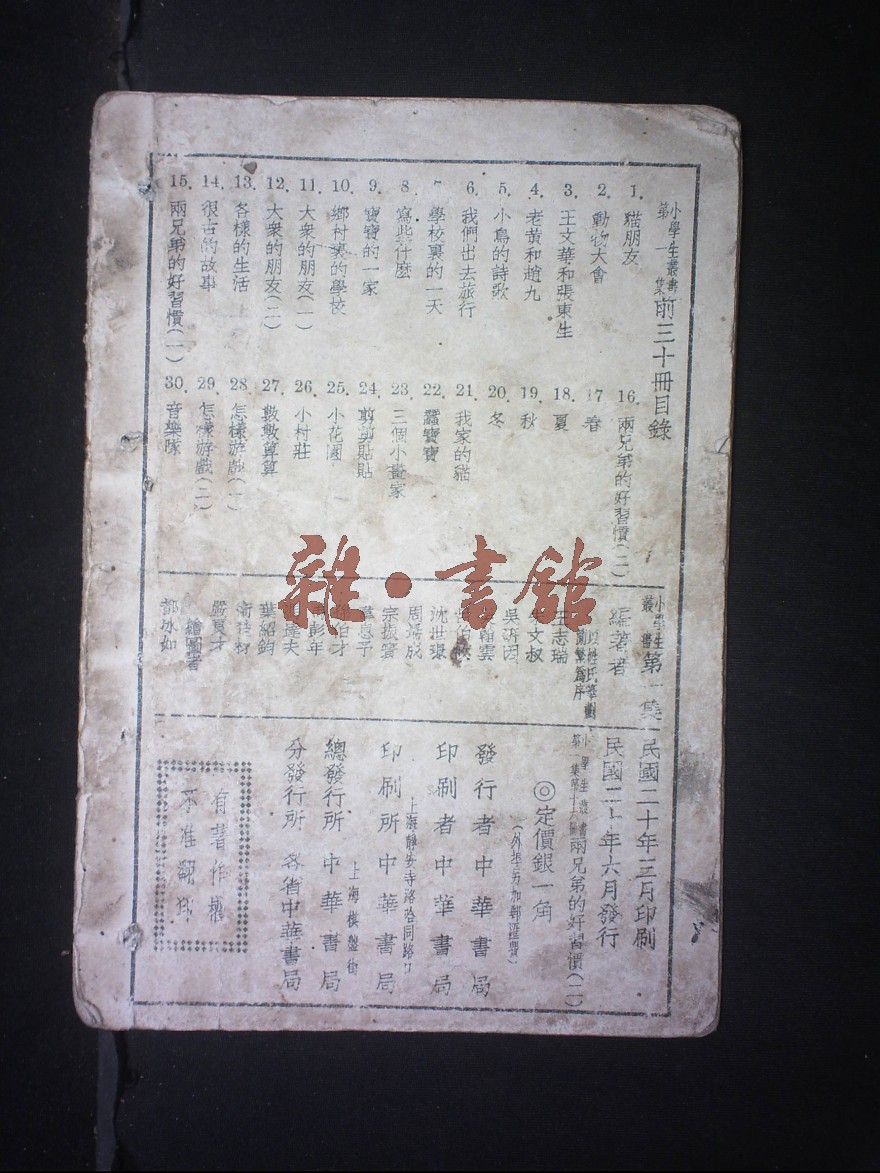 小學生叢書
第一集
前三十冊目錄
1. 貓朋友
2. 動物大會
3. 王文華和張東生
4. 老黃和趙九
5. 小鳥的詩歌
6. 我們出去旅行
7. 學校裏的一天
8. 寫些什麼
9. 寶寶的一家
10. 鄉村裏的學校
11. 大衆的朋友(一)
12. 大衆的朋友(二)
13. 各樣的生活
14. 很古的故事
15. 兩兄弟的好習慣(一)
16. 兩兄弟的好習慣(二)
17. 春
18. 夏
19. 秋
20. 冬
21. 我家的貓
22. 蠶寶寶
23. 三個小畫家
24. 剪剪貼貼
25. 小花園
26. 小村莊
27. 數數算算
28. 怎樣游戲(一)
29. 怎樣游戲(二)
30. 音樂隊
小學生叢書
第一集
編著者
以姓氏筆劃
簡繁爲序
王志瑞
朱文叔
吳研因
雲
沈世璟
周
宗振寰
韋息予
伯才
彭年
達夫
葉紹鈞
嚴良才
繪圖者
都冰如
民國二十年三月印刷
民國二十年六月發行
小學生叢書
第一集第十六冊
兩兄弟的好習慣(二)
◎定價銀一角
(外埠另加郵匯費)
發行者 中華書局
印刷者 中華書局
上海靜安寺路哈同路口
印刷所 中華書局
上海棋盤街
總發行所 中華書局
分發行所 各省中華書局
有著作權
不准翻印
雜·書館